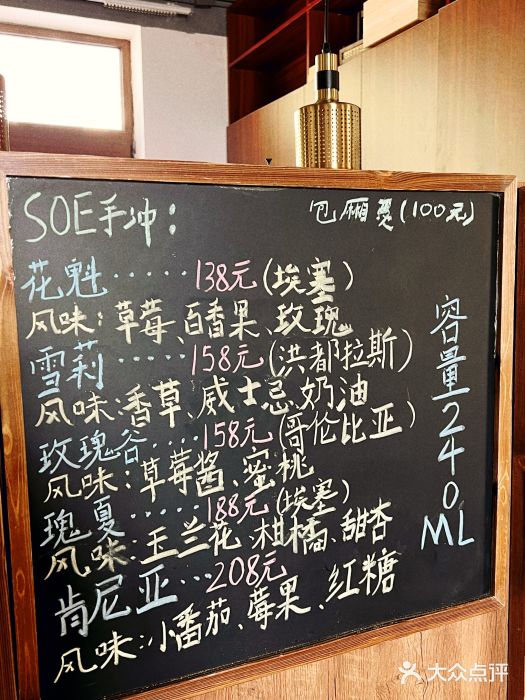 SOE手冲：
包厢费(100元)
花魁……138元(埃塞)
风味：草莓、百香果、玫瑰
雪莉……158元(洪都拉斯)
风味：香草、威士忌、奶油
玫瑰谷……158元(哥伦比亚)
风味：草莓酱、蜜桃
瑰夏……188元(埃塞)
风味：玉兰花、柑橘、甜杏
肯尼亚…208元
风味：小番茄、莓果、红糖
容量240ML
大众点评